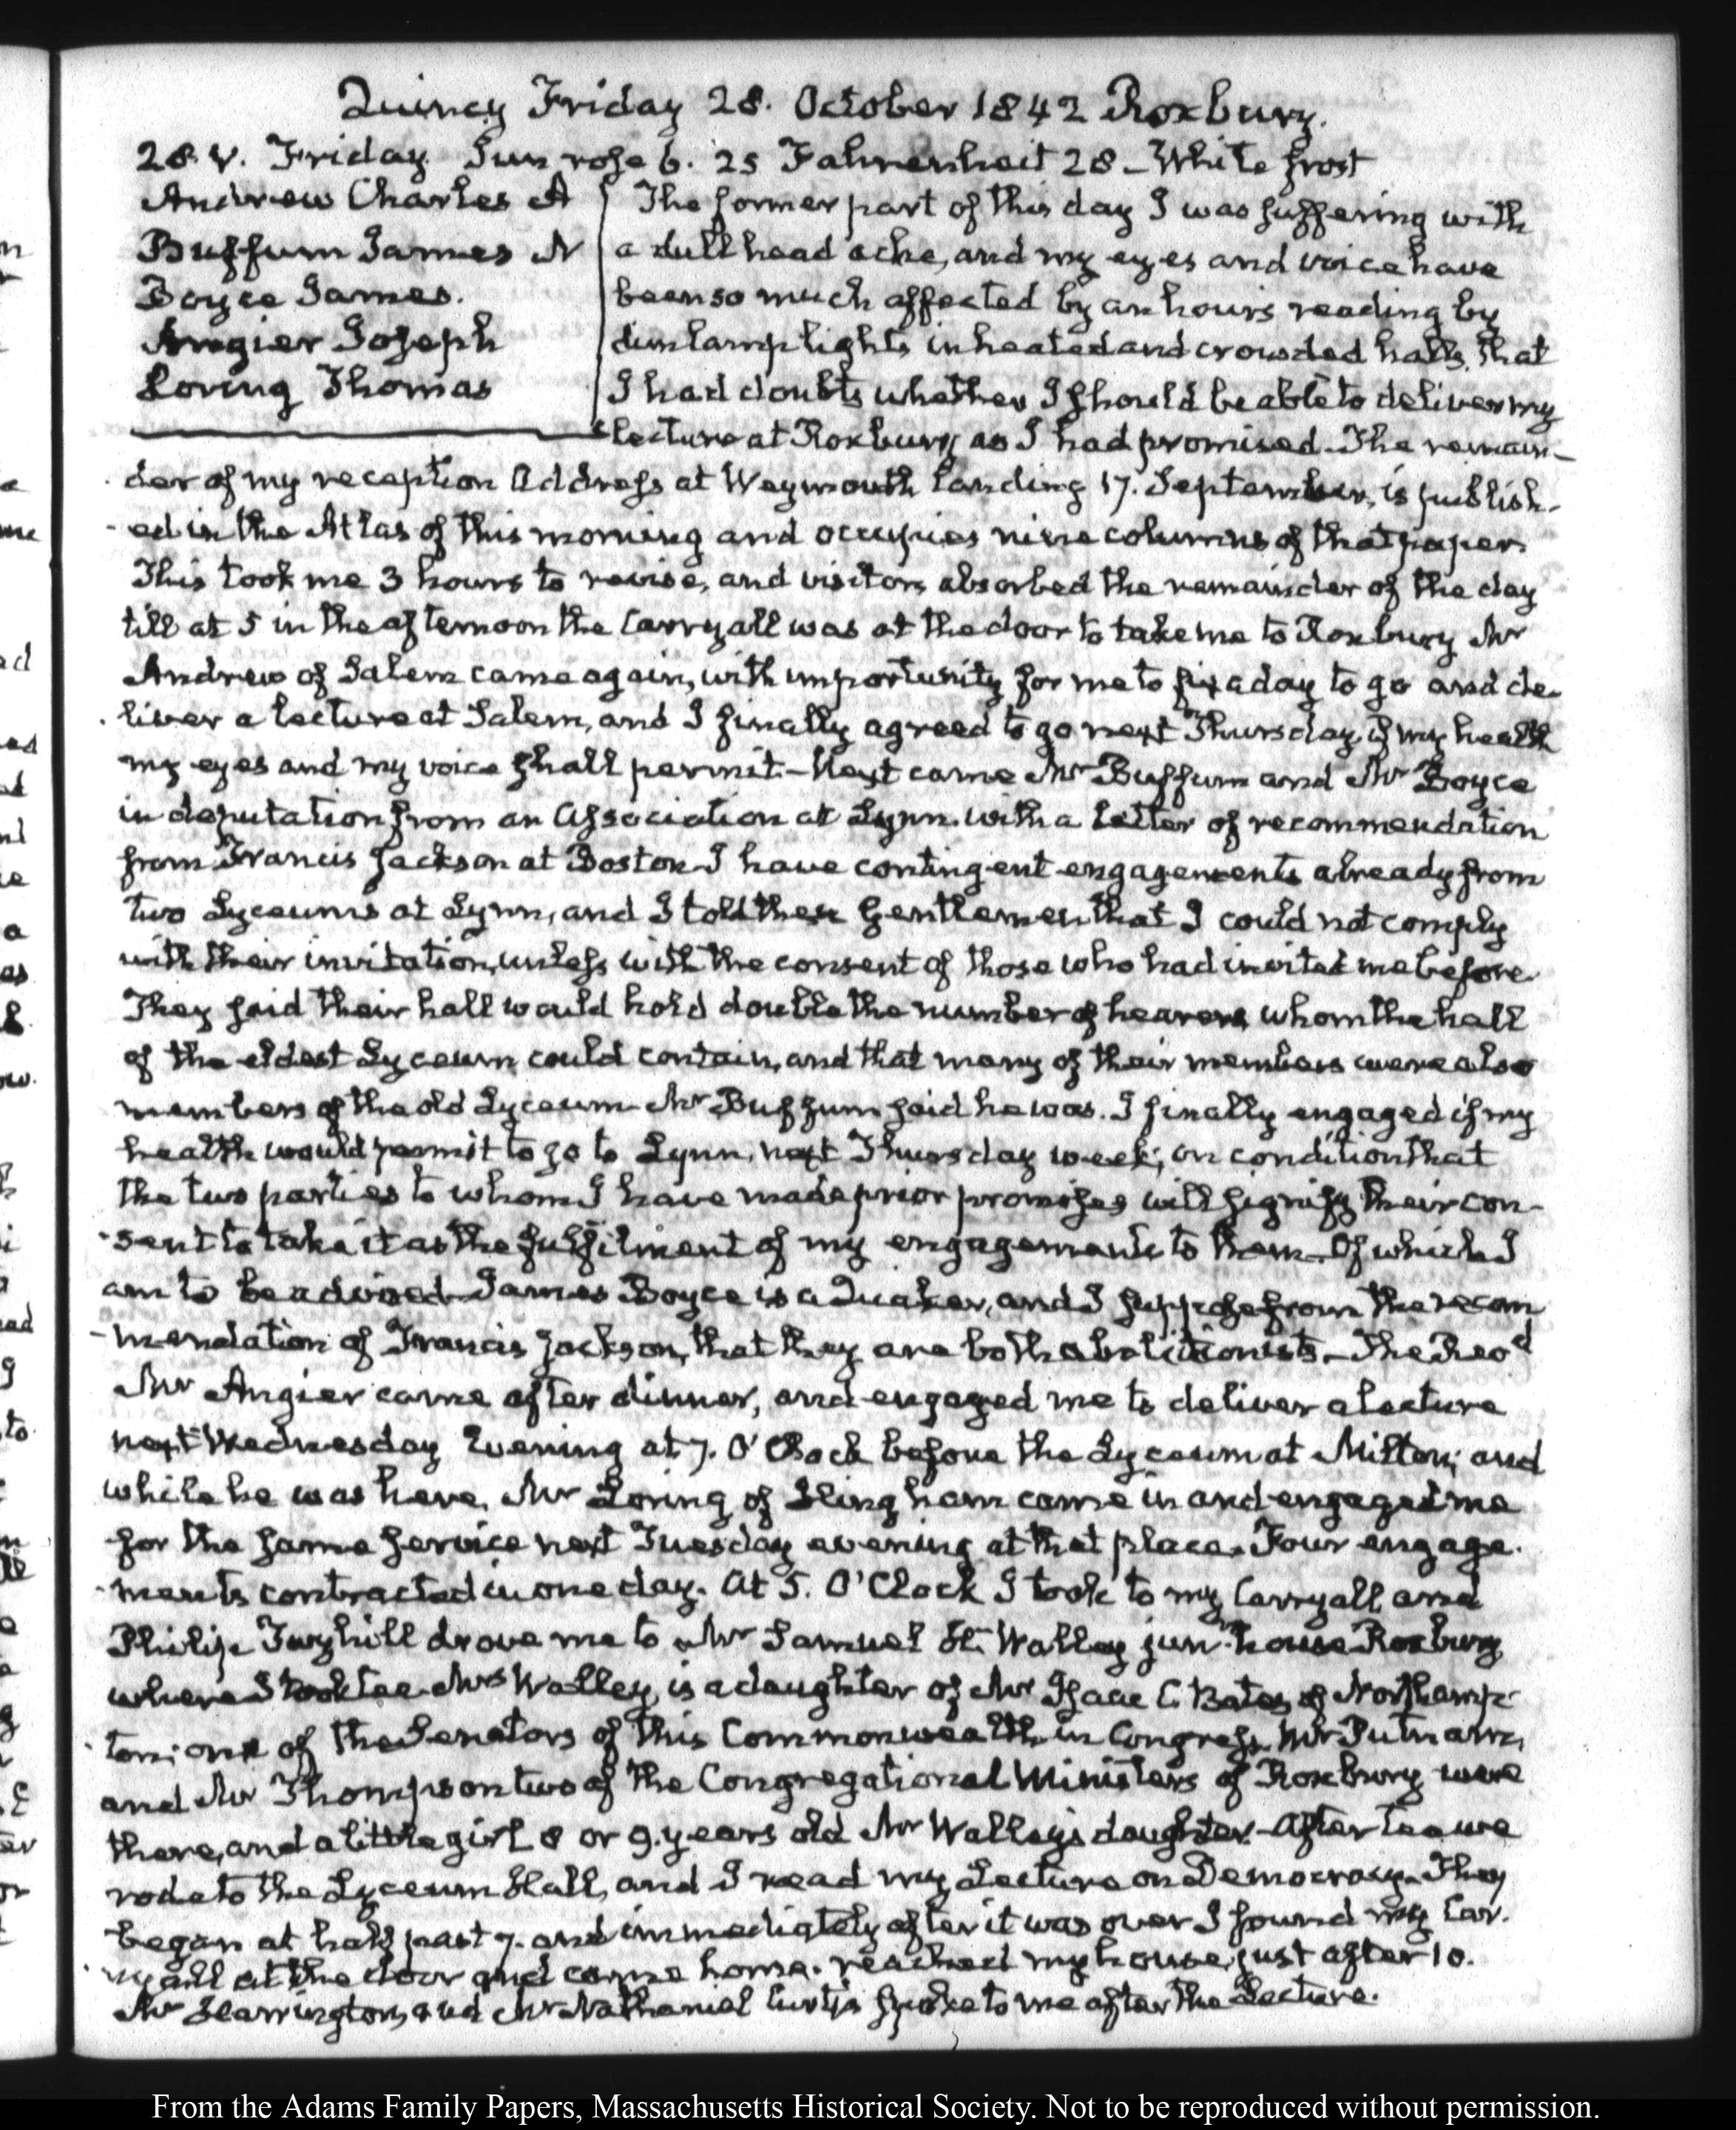 Quincy Friday 28. October 1842 Roxbury.
28. V. Friday. Sun rose 6. 25 Fahrenheit 28 - White frost
Andrew Charles A
Buffum James N
Boyce James.
Angier Joseph
Loring Thomas
The former part of this day I was suffering with
a dull head ache, and my eyes and voice have
been so much affected by an hour's reading by
dim lamp lights in heated and crowded halls, that
I had doubts whether I should be able to deliver my
lecture at Roxbury as I had promised. The remain-
der of my reception Address at Weymouth Landing 17. September, is publish-
-ed in the Atlas of this morning and occupies nine columns of that paper.
This took me 3 hours to revise, and visitors absorbed the remainder of the day
till at 5 in the afternoon the Carryall was at the door to take me to Roxbury Mr
Andrew of Salem came again, with importunity for me to fix a day to go and de-
liver a lecture at Salem, and I finally agreed to go next Thursday, if my health
my eyes and my voice shall permit - Next came Mr Buffum and Mr Boyce
in deputation from an Association at Lynn. with a letter of recommendation
from Francis Jackson at Boston. I have contingent engagements already from
two Lyceums at Lynn, and I told these Gentlemen that I could not comply
with their invitation, unless with the consent of those who had invited me before.
They said their hall would hold double the number of hearers whom the hall
of the oldest Lyceum could contain, and that many of their members were also
members of the old Lyceum. Mr Buffum said he was. I finally engaged if my
health would permit to go to Lynn, next Thursday week, on condition that
the two parties to whom I have made prior promises will signify their con-
-sent to take it as the fulfilment of my engagements to them - Of which I
am to be advised. James Boyce is a Quaker, and I suppose from the recom
-mendation of Francis Jackson, that they are both abolitionists. - The Revd
Mr Angier came after dinner, and engaged me to deliver a lecture
next Wednesday Evening at 7. O'Clock before the Lyceum at Milton; and
while he was here, Mr Loring of Hingham came in and engaged me
for the same service next Tuesday evening at that place. Four engage-
-ments contracted in one day. At 5. O'Clock I took to my Carryall and
Philip drove me to Mr Samuel H. Walley junr. house Roxbury
where I took tea. Mrs Walley is a daughter of Mr Isaac C. Bates of Northamp-
ton; one of the Senators of this Commonwealth in Congress. Mr Putnam,
and Mr Thompson two of the Congregational Ministers of Roxbury were
there, and a little girl 8 or 9. years old Mr Walley's daughter. After tea we
rode to the Lyceum Hall, and I read my Lecture on Democracy. They
began at half past 7. and immediately after it was over I found my Car-
ryall at the door and came home. reached my house, just after 10.
Mr Harrington, and Mr Nathaniel Curtis spoke to me after the Lecture.
From the Adams Family Papers, Massachusetts Historical Society. Not to be reproduced without permission.